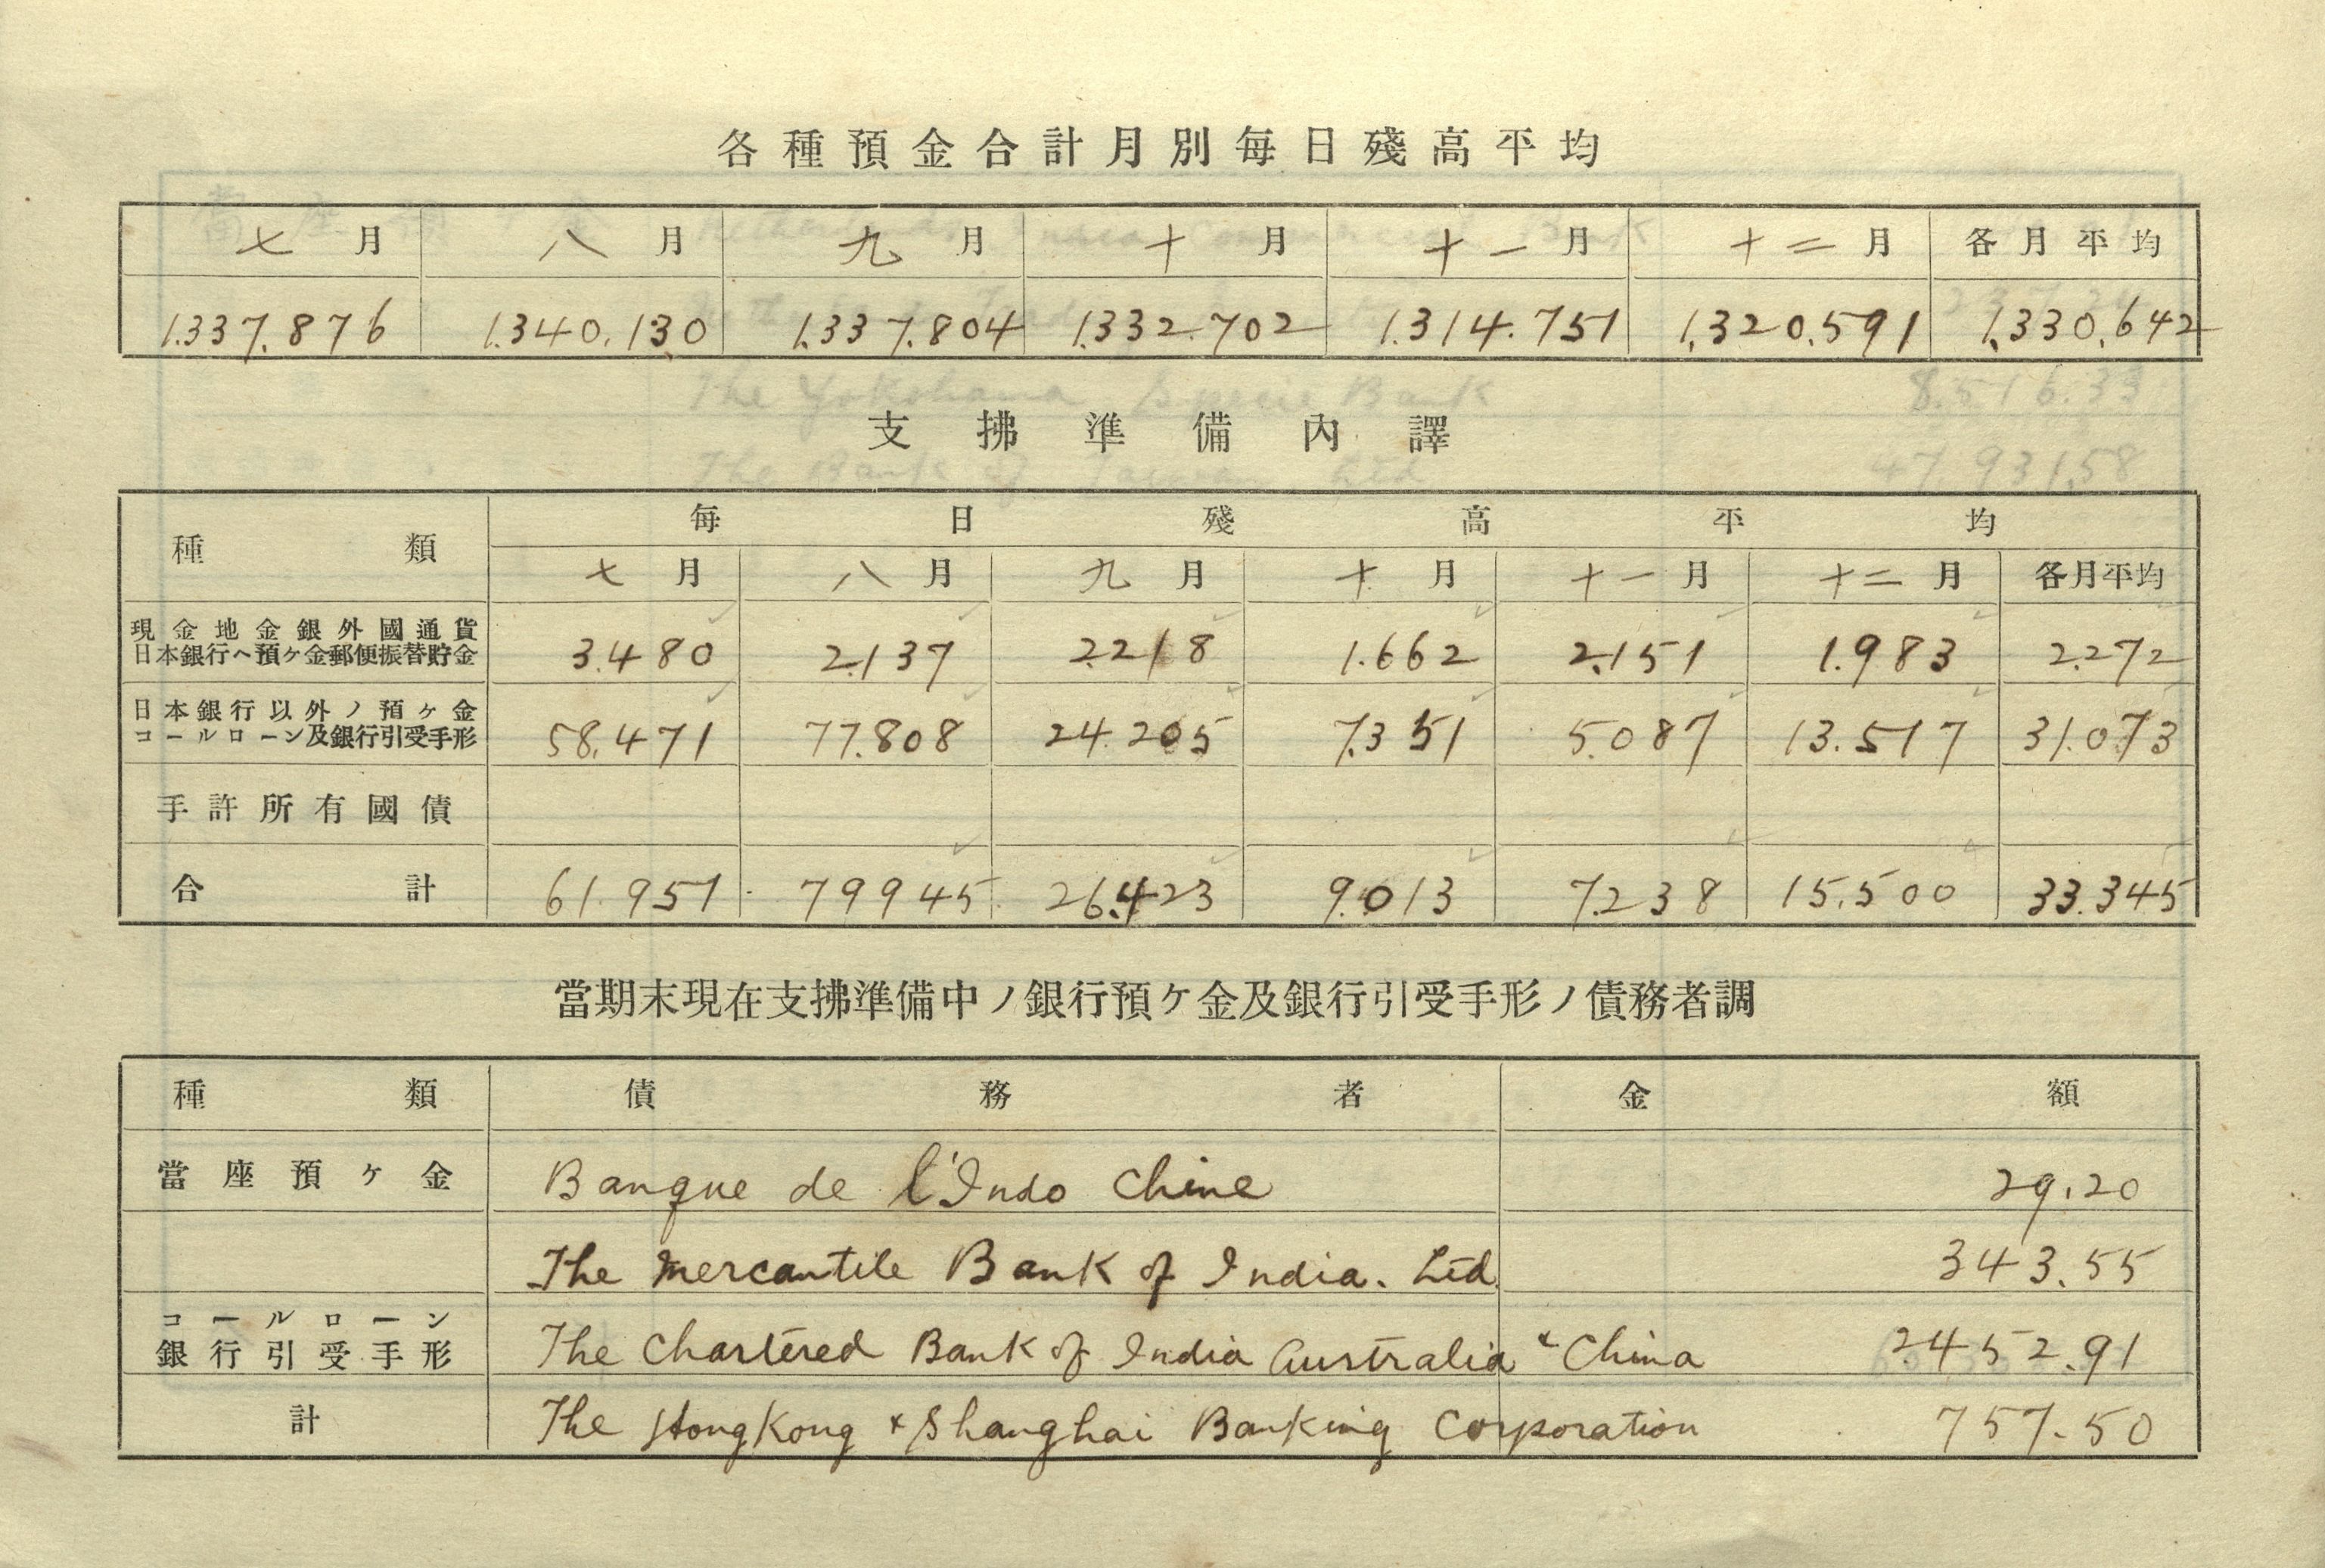 各種預金合計月別每日殘高平均
七月 八月 九月 十月 十一月 十二月 各月平均
1.337.876 1.340.130 1.337.804 1.332.702 1.314.751 1.320.591 1.330.642
支拂準備內譯
種類 每日殘高平均
七月 八月 九月 十月 十一月 十二月 各月平均
現金地金銀外國通貨
日本銀行ヘ預ケ金郵便振替貯金 3.480 2.137 2.218 1.662 2.151 1.983 2.272
日本銀行以外ノ預ケ金
コールローン及銀行引受手形 58.471 77.808 24.205 7.351 5.087 13.517 31.073
手許所有國債
合計 61.951 79945 26.423 9.013 7.238 15.500 33.345
當期末現在支拂準備中ノ銀行預ケ金及銀行引受手形ノ債務者調
種類 債務者 金額
當座預ケ金 Banque de l'Indo Chine 29.20
The Mercantile Bank of India. Ltd. 343.55
コールローン
銀行引受手形 The Chartered Bank of India Australia & China 2.452.91
計 The HongKong & Shanghai Banking Corporation 757.50